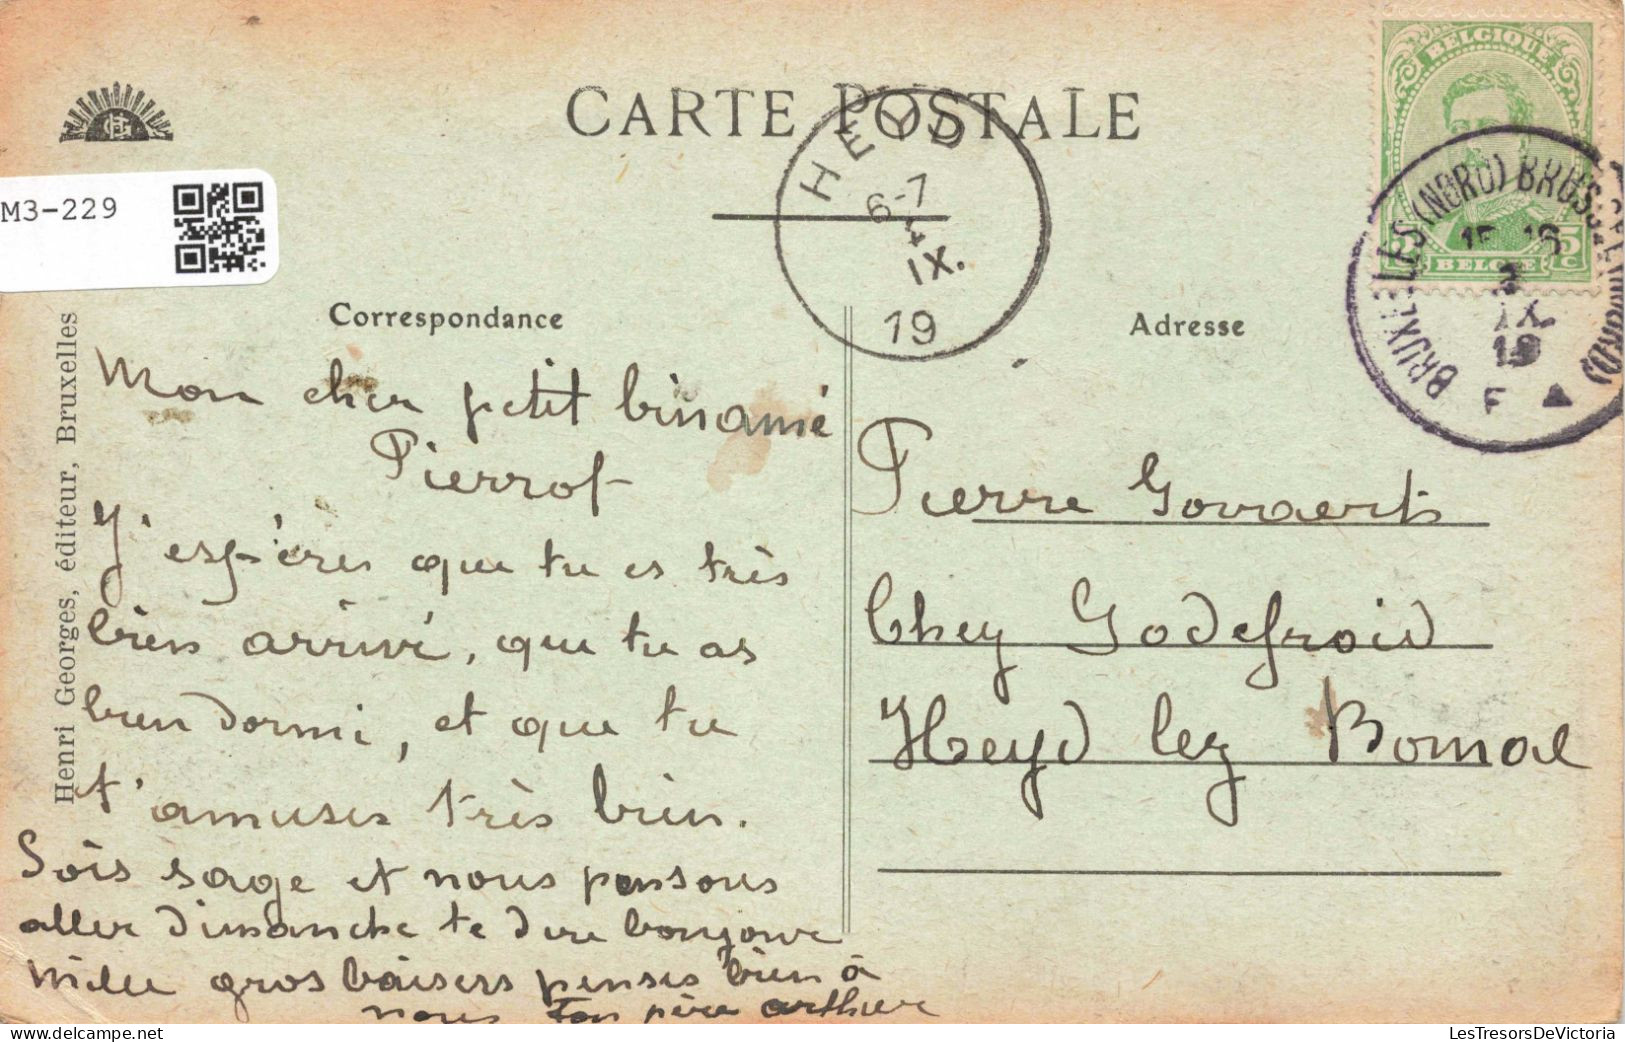 CARTE POSTALE
BELGIQUE
5 C
BELGIE
HEYD
6-7
4
IX.
19
BRUXELLES (NORD) BRUSSEL (NOORD)
IX
19
F
M3-229
Henri Georges, éditeur, Bruxelles
Correspondance
Mon cher petit binamé
Pierrot
J'espères que tu es très
bien arrivé, que tu as
bien dormi, et que tu
t'amuses très bien.
Sois sage et nous pensons
aller dimanche te dire bonjour
Mille gros baisers penses bien à
nous Ton père arthur
Adresse
Pierre Govaerts
Chez Godefroid
Heyd lez Bomal
LesTresorsDeVictoria